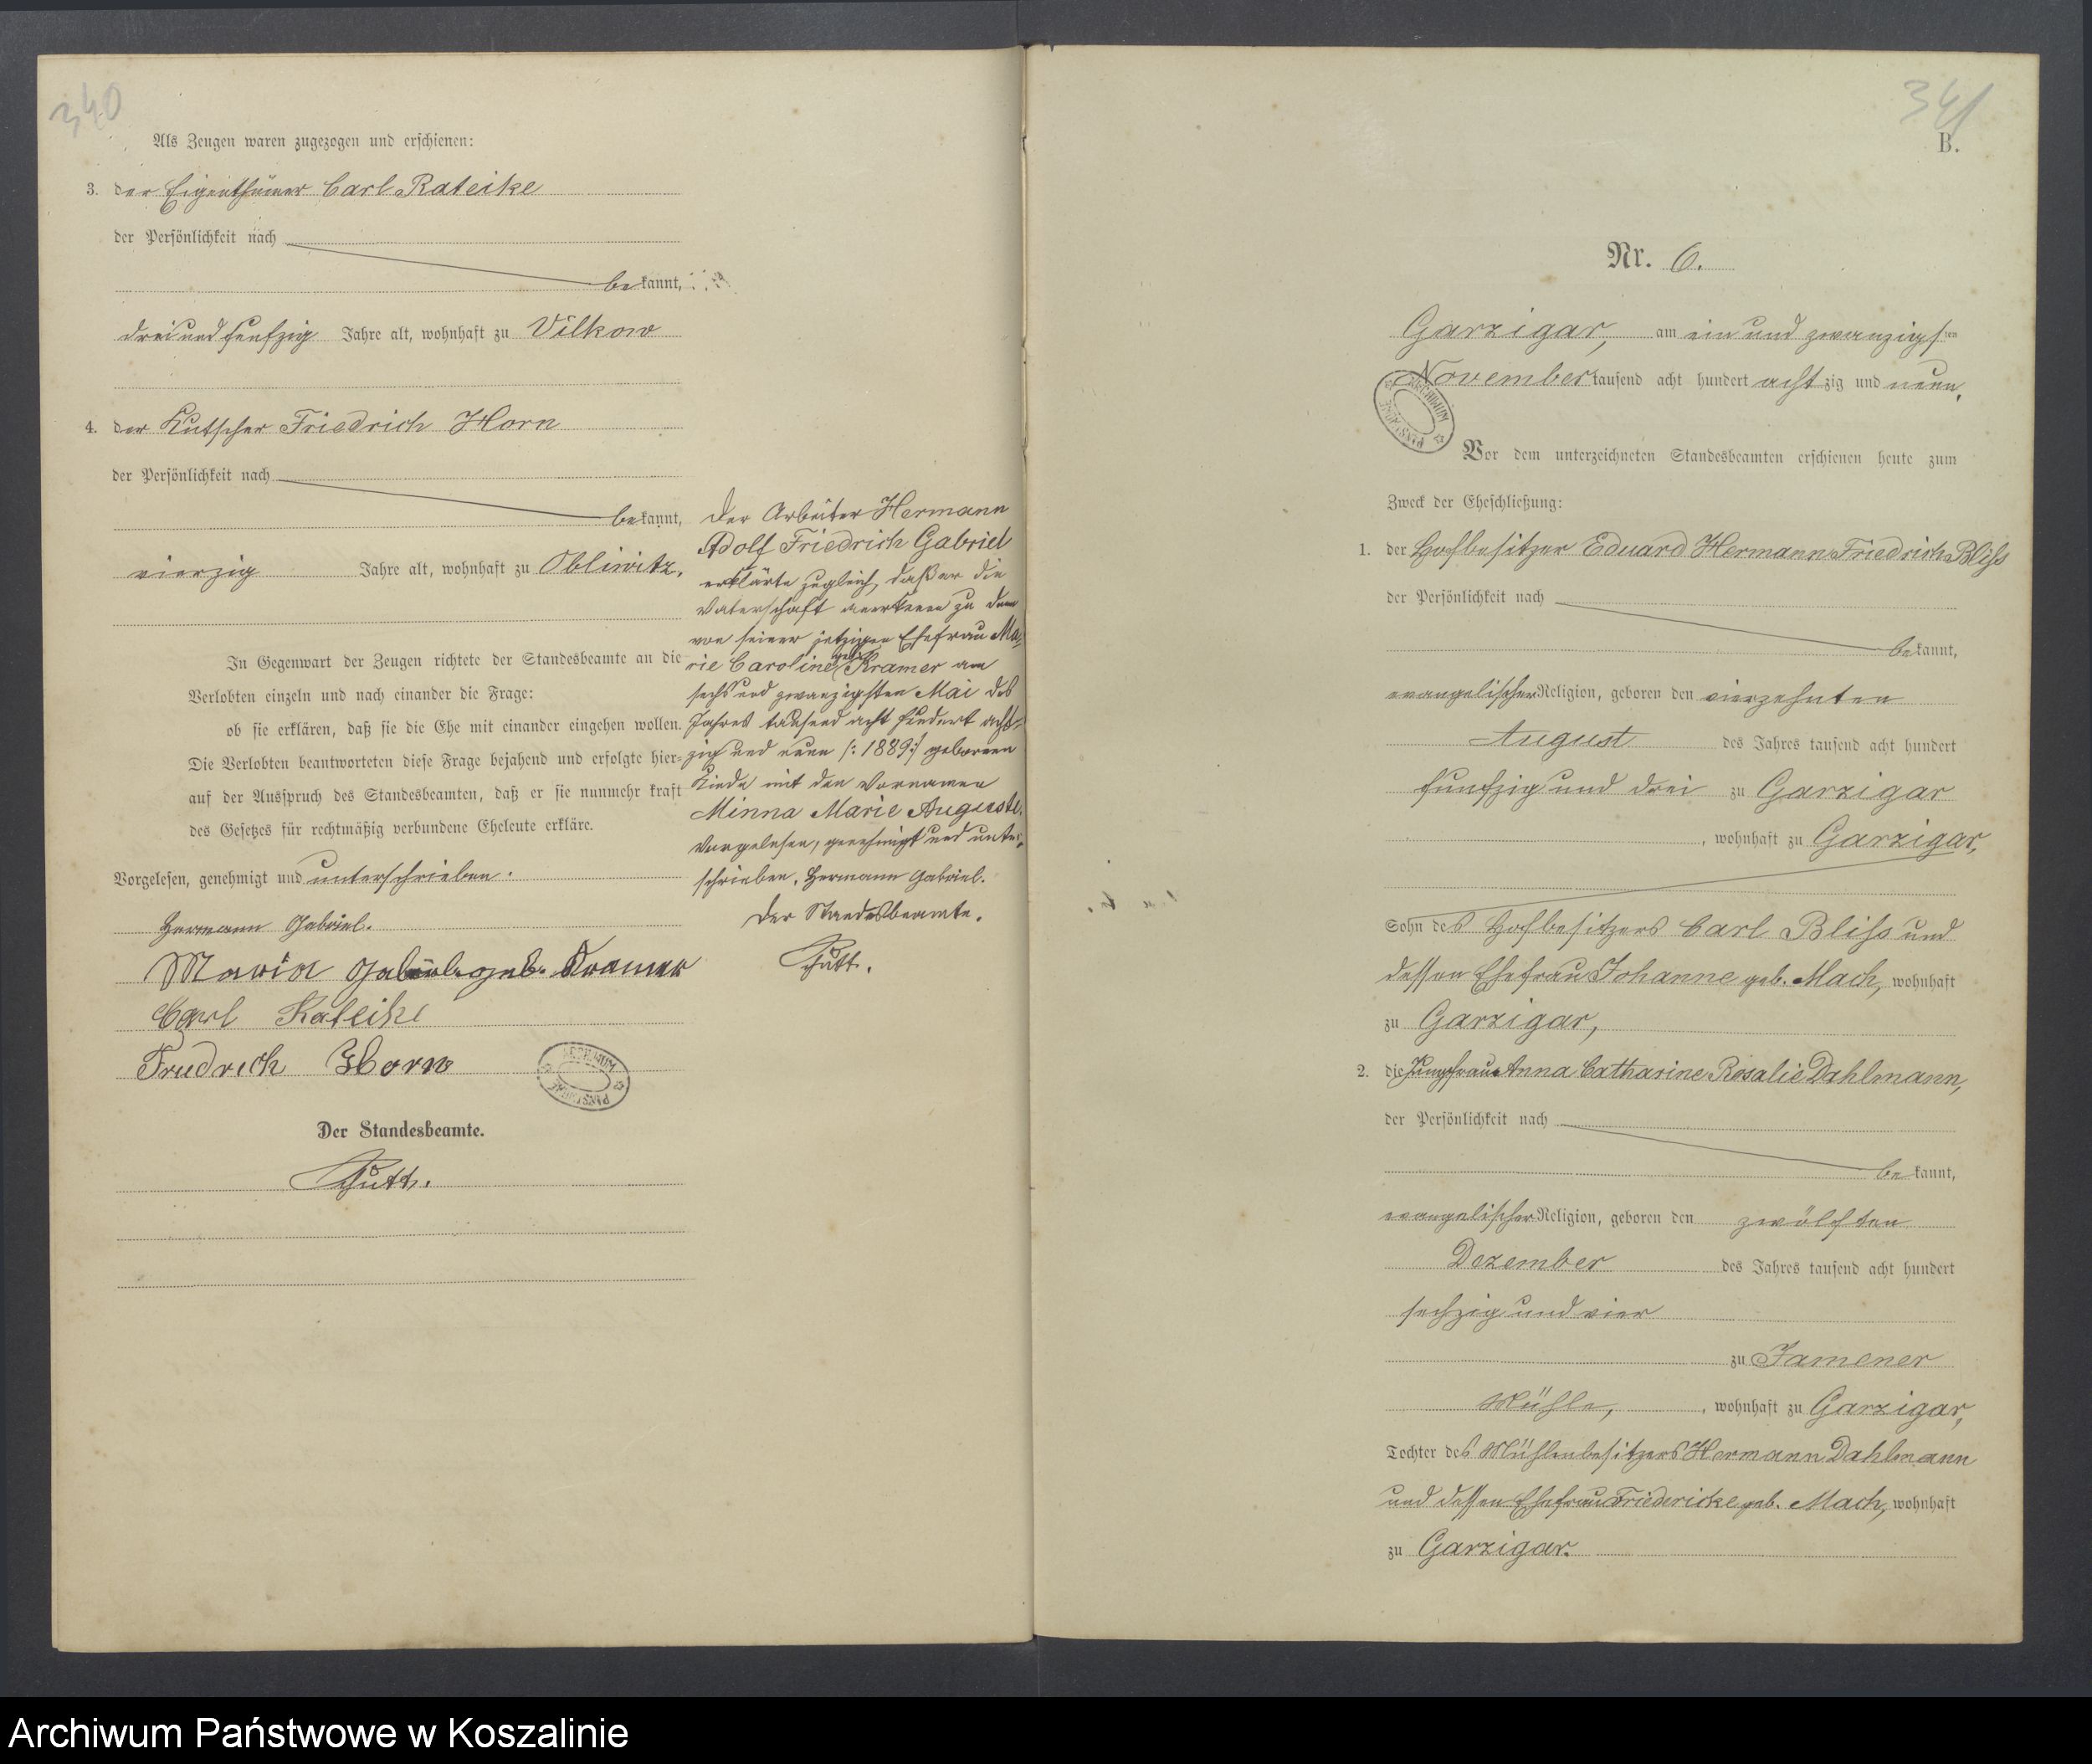 340
Als Zeugen waren zugezogen und erschienen:
3. der Eigenthümer Carl Rateike
der Persönlichkeit nach
bekannt,
dreiundfunfzig Jahre alt, wohnhaft zu Vilkow
4. der Kutscher Friedrich Horn
der Persönlichkeit nach
bekannt,
vierzig Jahre alt, wohnhaft zu Obliwitz.
In Gegenwart der Zeugen richtete der Standesbeamte an die
Verlobten einzeln und nach einander die Frage:
ob sie erklären, daß sie die Ehe mit einander eingehen wollen.
Die Verlobten beantworteten diese Frage bejahend und erfolgte hier-
auf der Ausspruch des Standesbeamten, daß er sie nunmehr kraft
des Gesetzes für rechtmäßig verbundene Eheleute erkläre.
Vorgelesen, genehmigt und unterschrieben.
Hermann Gabriel.
Maria Gabriel geb. Kramer
Carl Rateike
Friedrich Horn
ARCHIWUM PAŃSTWOWE
Der Standesbeamte.
Der Arbeiter Hermann
Adolf Friedrich Gabriel
erklärte zugleich, daß er die
Vaterschaft anerkenne zu dem
von seiner jetzigen Ehefrau Ma-
rie Caroline geb. Kramer am
sechsundzwanzigsten Mai des
Jahres tausend acht hundert acht-
zig und neun /: 1889 :/ geborenen
Kinde mit den Vornamen
Minna Marie Auguste.
Vorgelesen, genehmigt und unter-
schrieben. Hermann Gabriel.
Der Standesbeamte.
341
B.
Nr. 6.
Garzigar, am ein und zwanzigsten
November tausend acht hundert achtzig und neun.
ARCHIWUM PAŃSTWOWE
Vor dem unterzeichneten Standesbeamten erschienen heute zum
Zweck der Eheschließung:
1. der Hofbesitzer Eduard Hermann Friedrich Bliss
der Persönlichkeit nach
bekannt,
evangelischer Religion, geboren den vierzehnten
August des Jahres tausend acht hundert
funfzig und drei zu Garzigar
, wohnhaft zu Garzigar,
Sohn des Hofbesitzers Carl Bliss und
dessen Ehefrau Johanne geb. Mach, wohnhaft
zu Garzigar,
2. die Jungfrau Anna Catharine Rosalie Dahlmann,
der Persönlichkeit nach
bekannt,
evangelischer Religion, geboren den zwölften
Dezember des Jahres tausend acht hundert
sechzig und vier
zu Jamener
Mühle, , wohnhaft zu Garzigar,
Tochter des Mühlenbesitzers Hermann Dahlmann
und dessen Ehefrau Friedericke geb. Mach, wohnhaft
zu Garzigar.
Archiwum Państwowe w Koszalinie